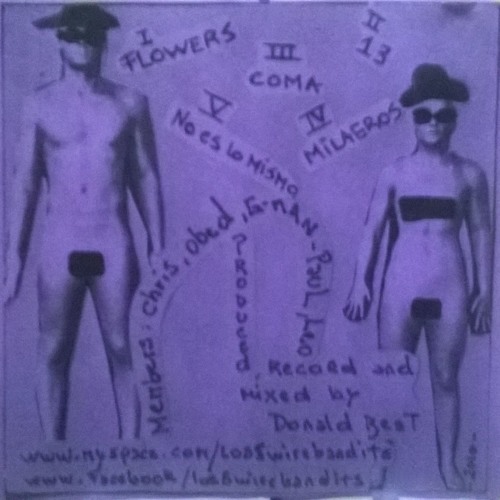 I
FLOWERS
II
13
III
COMA
IV
MILAGROS
V
No es lo mismo
Members: Chris, Obed, G-MAN - Paul, Leo
Produced, Record and
Mixed by
Donald Beat
www.myspace.com/los$wirebandits
www.facebook/los$wirebandits
2010-